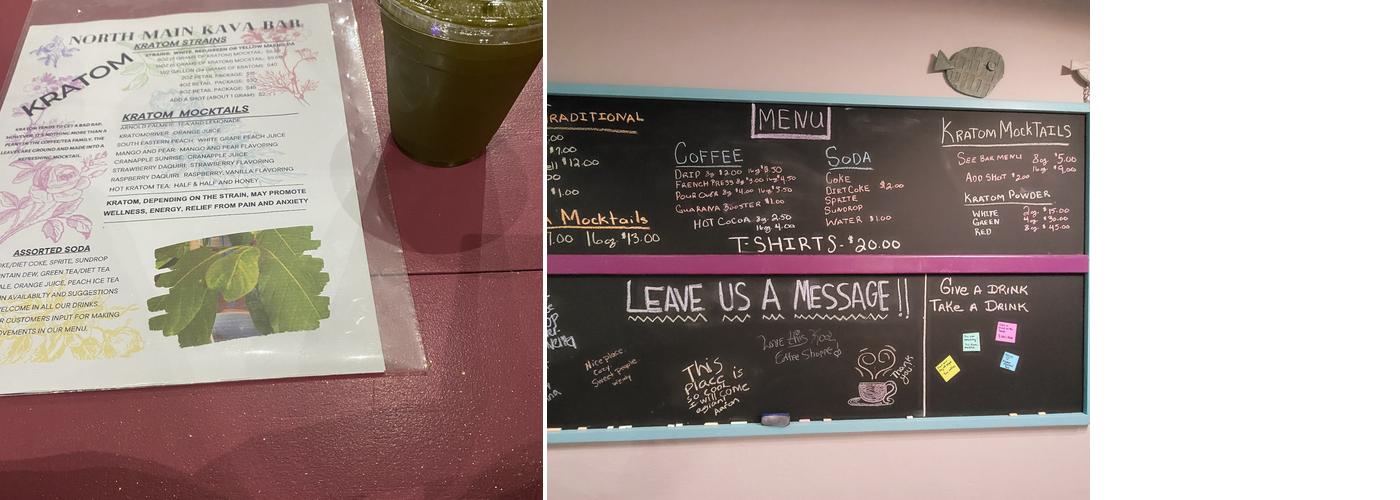 NORTH MAIN KAVA BAR
KRATOM STRAINS
STRAINS: WHITE, RED, GREEN OR YELLOW MAENGDA
2OZ RETAIL PACKAGE: $15
4OZ RETAIL PACKAGE: $30
8OZ RETAIL PACKAGE: $45
ADD A SHOT (ABOUT 1 GRAM): $2
KRATOM
KRATOM TENDS TO GET A BAD RAP,
HOWEVER IT'S NOTHING MORE THAN A
PLANT IN THE COFFEE/TEA FAMILY, THE
LEAVES ARE GROUND AND MADE INTO A
REFRESHING MOCKTAIL.
KRATOM MOCKTAILS
ARNOLD PALMER: TEA AND LEMONADE
KRATOMDRIVER: ORANGE JUICE
SOUTH EASTERN PEACH: WHITE GRAPE PEACH JUICE
MANGO AND PEAR: MANGO AND PEAR FLAVORING
CRANAPPLE SUNRISE: CRANAPPLE JUICE
STRAWBERRY DAQUIRI: STRAWBERRY FLAVORING
RASPBERRY DAQUIRI: RASPBERRY, VANILLA FLAVORING
HOT KRATOM TEA: HALF & HALF AND HONEY
KRATOM, DEPENDING ON THE STRAIN, MAY PROMOTE
WELLNESS, ENERGY, RELIEF FROM PAIN AND ANXIETY
ASSORTED SODA
OKE/DIET COKE, SPRITE, SUNDROP
NTAIN DEW, GREEN TEA/DIET TEA
ALE, ORANGE JUICE, PEACH ICE TEA
IN AVAILABILTY AND SUGGESTIONS
WELCOME IN ALL OUR DRINKS.
R CUSTOMERS INPUT FOR MAKING
OVEMENTS IN OUR MENU.
RADITIONAL
.00
7.00
ell $12.00
00
$1.00
a Mocktails
7.00 16oz $13.00
MENU
COFFEE
DRIP 8oz $2.00 16oz $3.50
FRENCH PRESS 8oz $3.00 16oz $4.50
POUR OVER 8oz $4.00 16oz $5.50
GUARANA BOOSTER $1.00
HOT COCOA 8oz 2.50
16oz 4.00
SODA
COKE
DIET COKE $2.00
SPRITE
SUNDROP
WATER $1.00
T-SHIRTS - $20.00
KRATOM MOCKTAILS
SEE BAR MENU 8oz $5.00
16oz $9.00
ADD SHOT $2.00
KRATOM POWDER
WHITE 2oz $15.00
GREEN 4oz $30.00
RED 8oz $45.00
LEAVE US A MESSAGE!!
Nice place.
Cozy.
Sweet people.
Wendy
THIS
PLACE IS
SO COOL
I WILL COME
agian!
Aaron
Love this Kool
Coffee Shoppe
Thank
you
GIVE A DRINK
TAKE A DRINK